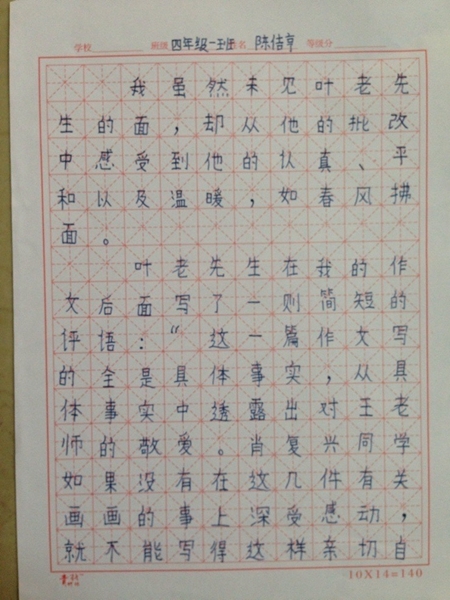 学校 班级 四年级一班 姓名 陈佶亨 等级分
我虽然未见叶老先
生的面，却从他的批改
中感受到他的认真、平
和以及温暖，如春风拂
面。
叶老先生在我的作
文后面写了一则简短的
评语：“这一篇作文写
的全是具体事实，从具
体事实中透露出对王老
师的敬爱。肖复兴同学
如果没有在这几件有关
画画的事上深受感动，
就不能写得这样亲切自
10X14=140